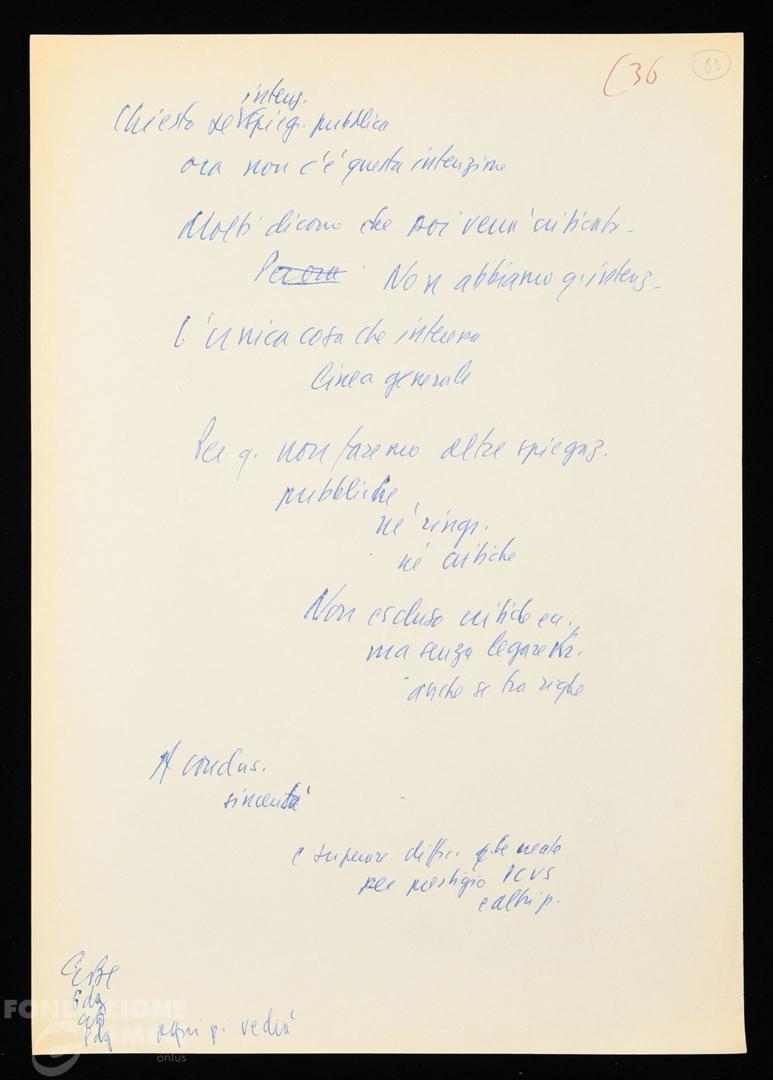 (36 83
intenz.
Chiesto se spieg. pubblica
ora non c'è questa intenzione
Molti dicono che poi verrà criticato -
Per ora Non abbiamo q. intenz -
L'unica cosa che interessa
linea generale
Per q. non faremo altre spiegaz.
pubbliche
né ringr.
né critiche
Non escluso critiche ec.
ma senza legare Kr.
anche se tra righe
A conclus.
sincerità
e superare diffic. create
per prestigio PCUS
e altri p.
ogni p. vedrà
FONDAZIONE
onlus